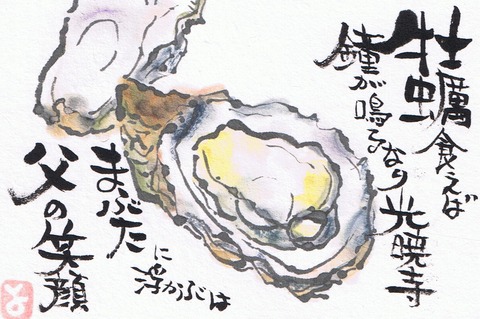 牡蠣食えば
鐘が鳴るなり光暁寺
まぶたに浮かぶは
父の笑顔